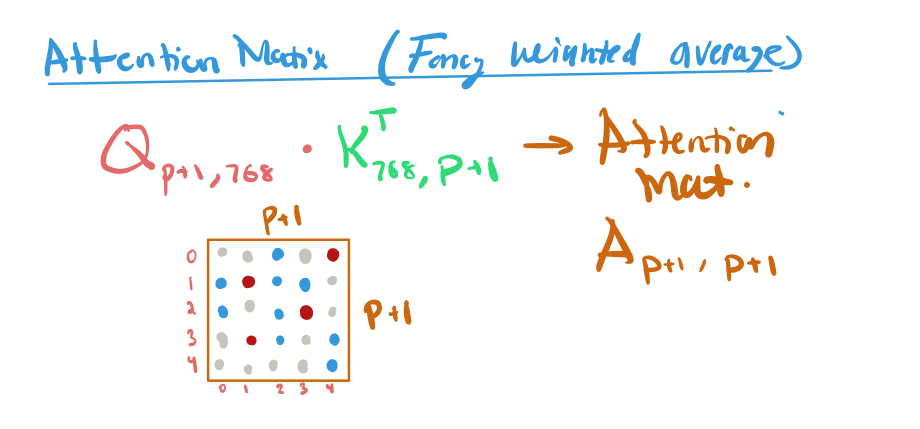 Attention Matrix (Fancy weighted average)
Q p+1, 768 · K^T 768, p+1 → Attention mat.
A p+1, p+1
p+1
0
1
2
3
4
p+1
0 1 2 3 4